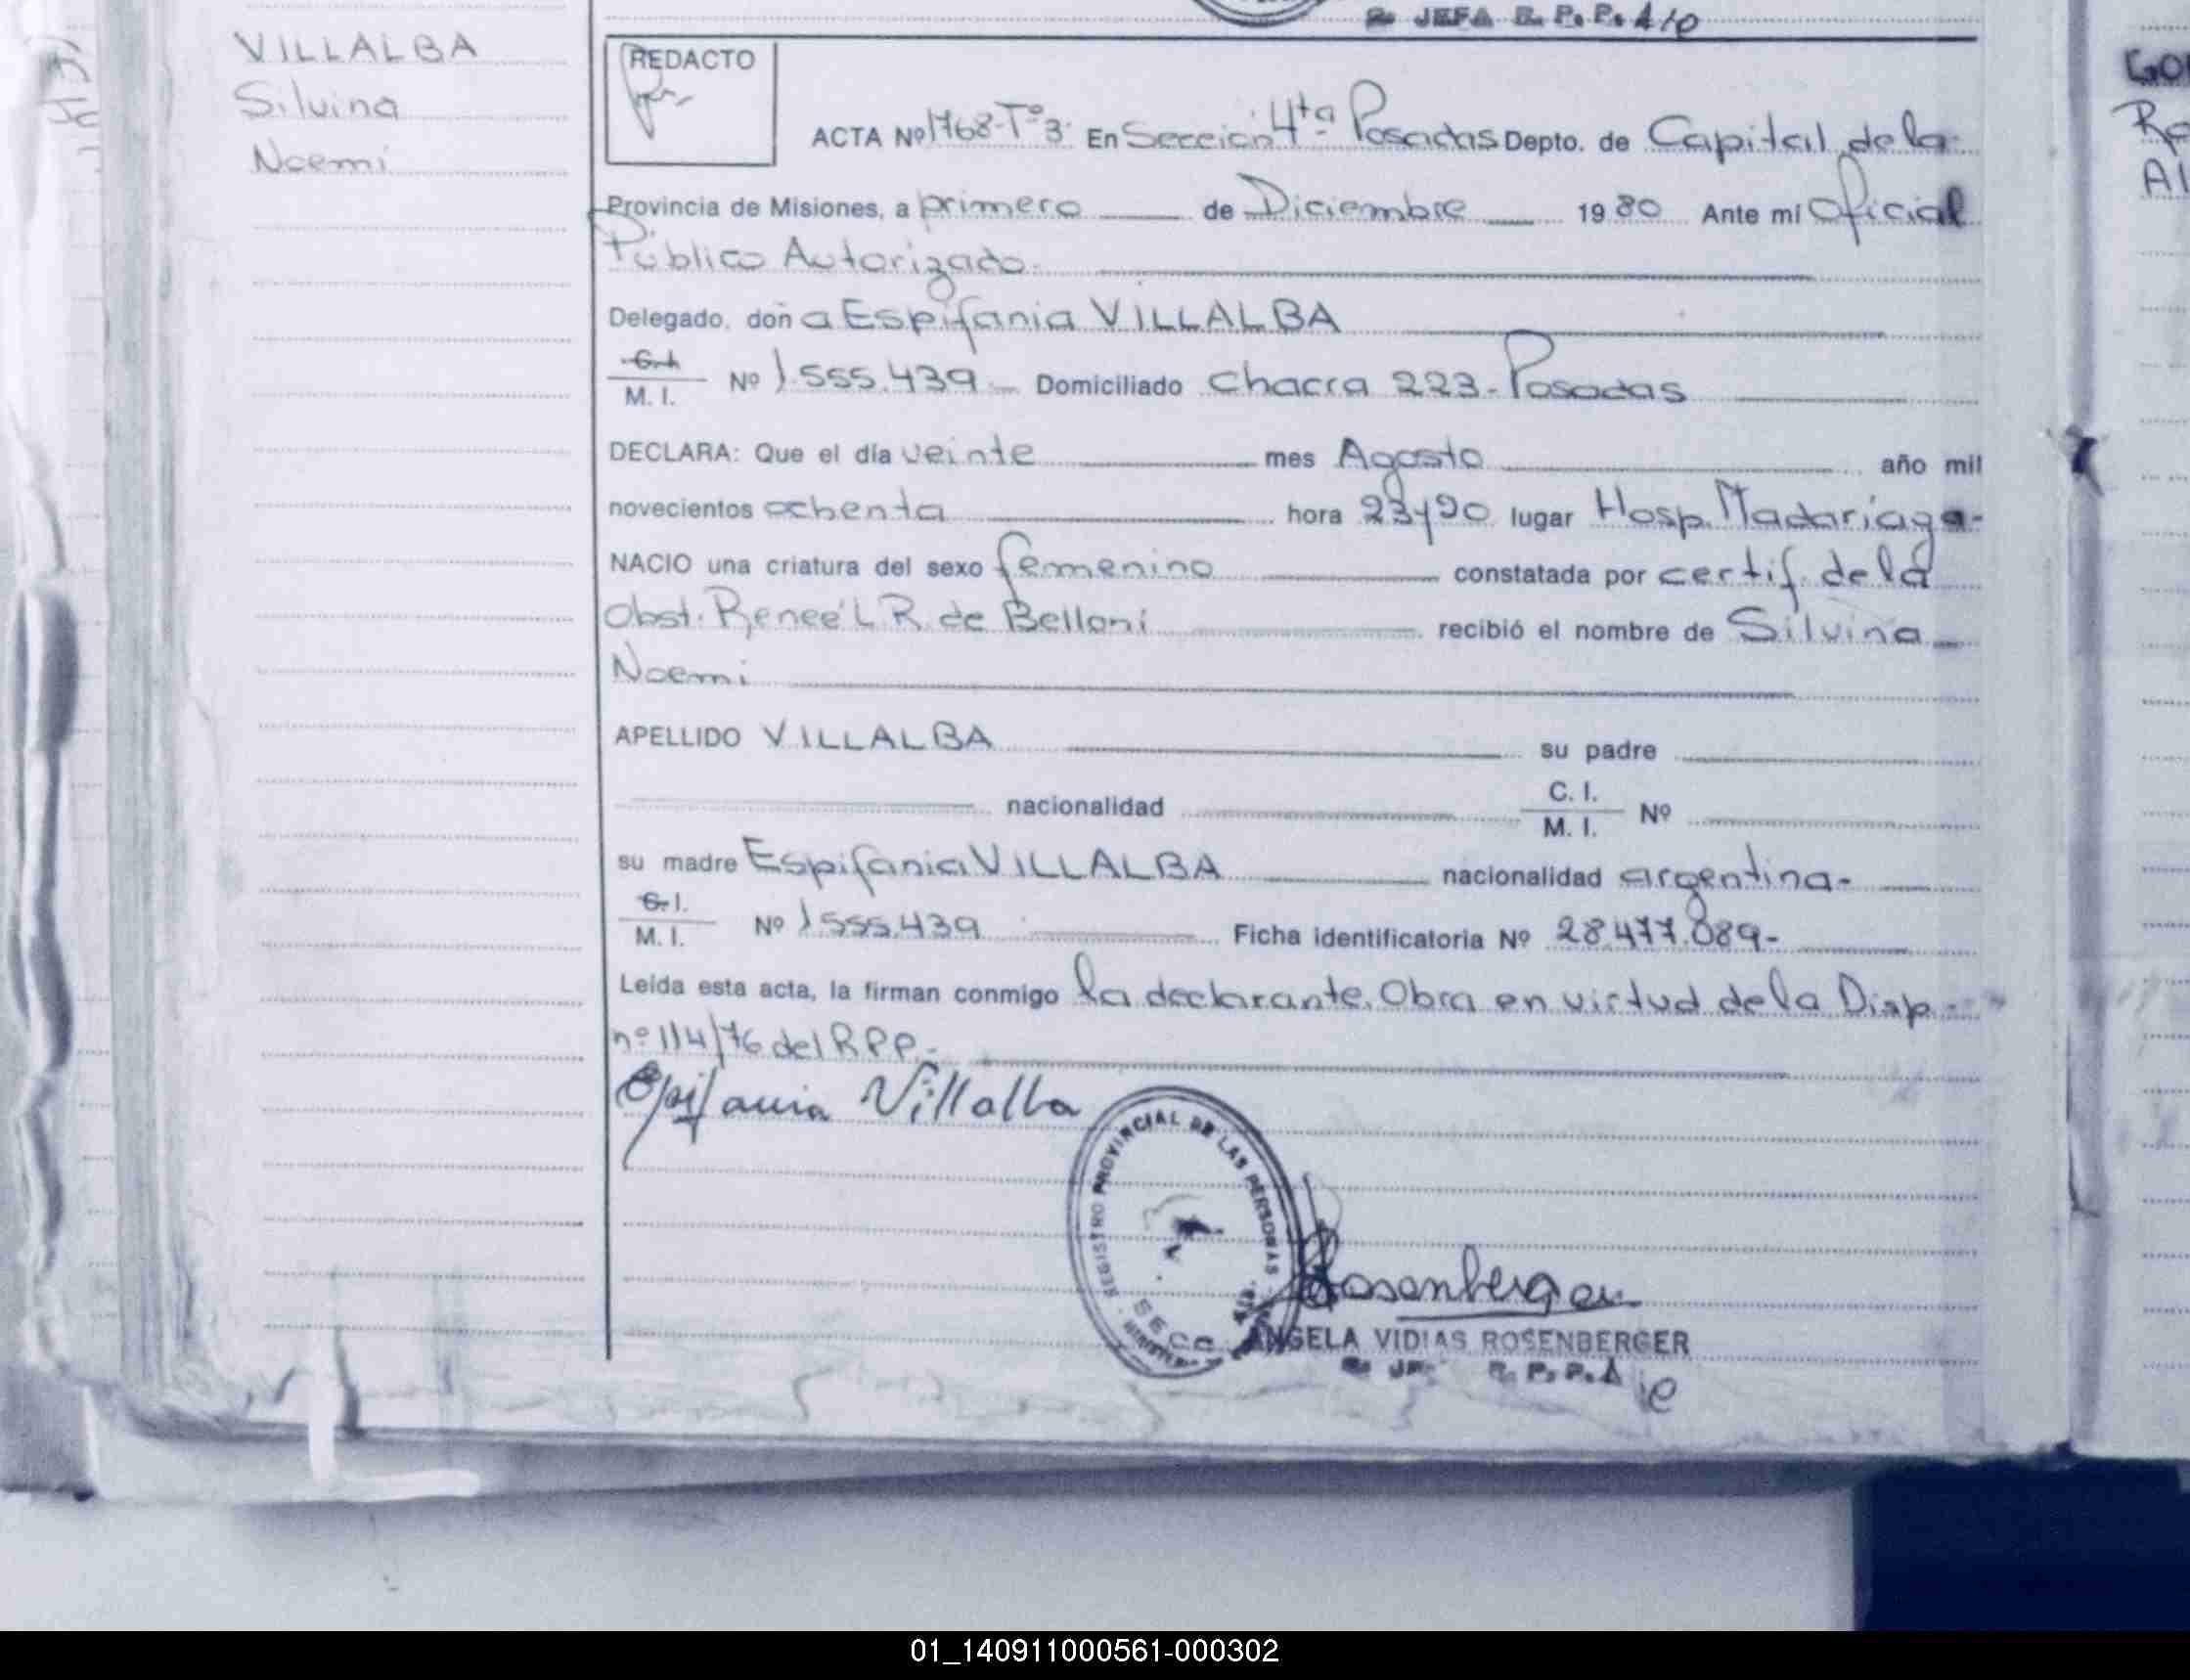 JEFA R. P. P. A/c
VILLALBA
Silvina
Noemi
REDACTO
ACTA Nº 1768-Tº3- En Sección 4ta Posadas Depto. de Capital de la
Provincia de Misiones, a primero de Diciembre 1980 Ante mí Oficial
Público Autorizado.
Delegado, doña Espifania VILLALBA
C.I.
M. I. Nº 1.555.439 Domiciliado Chacra 223-Posadas
DECLARA: Que el día veinte mes Agosto año mil
novecientos ochenta hora 23y20 lugar Hosp. Madariaga-
NACIO una criatura del sexo femenino constatada por certif. de la
Obst. Reneé L R. de Belloni recibió el nombre de Silvina
Noemi
APELLIDO VILLALBA su padre
nacionalidad C. I.
M. I. Nº
su madre Espifania VILLALBA nacionalidad argentina-
C. I.
M. I. Nº 1.555.439 Ficha identificatoria Nº 28.477.089-
Leída esta acta, la firman conmigo la declarante. Obra en virtud de la Disp.
nº 114/76 del RPP.-
Epifania Villalba
REGISTRO PROVINCIAL DE LAS PERSONAS
SECC
Rosenberger
ANGELA VIDIAS ROSENBERGER
R. P. P. A
01_140911000561-000302